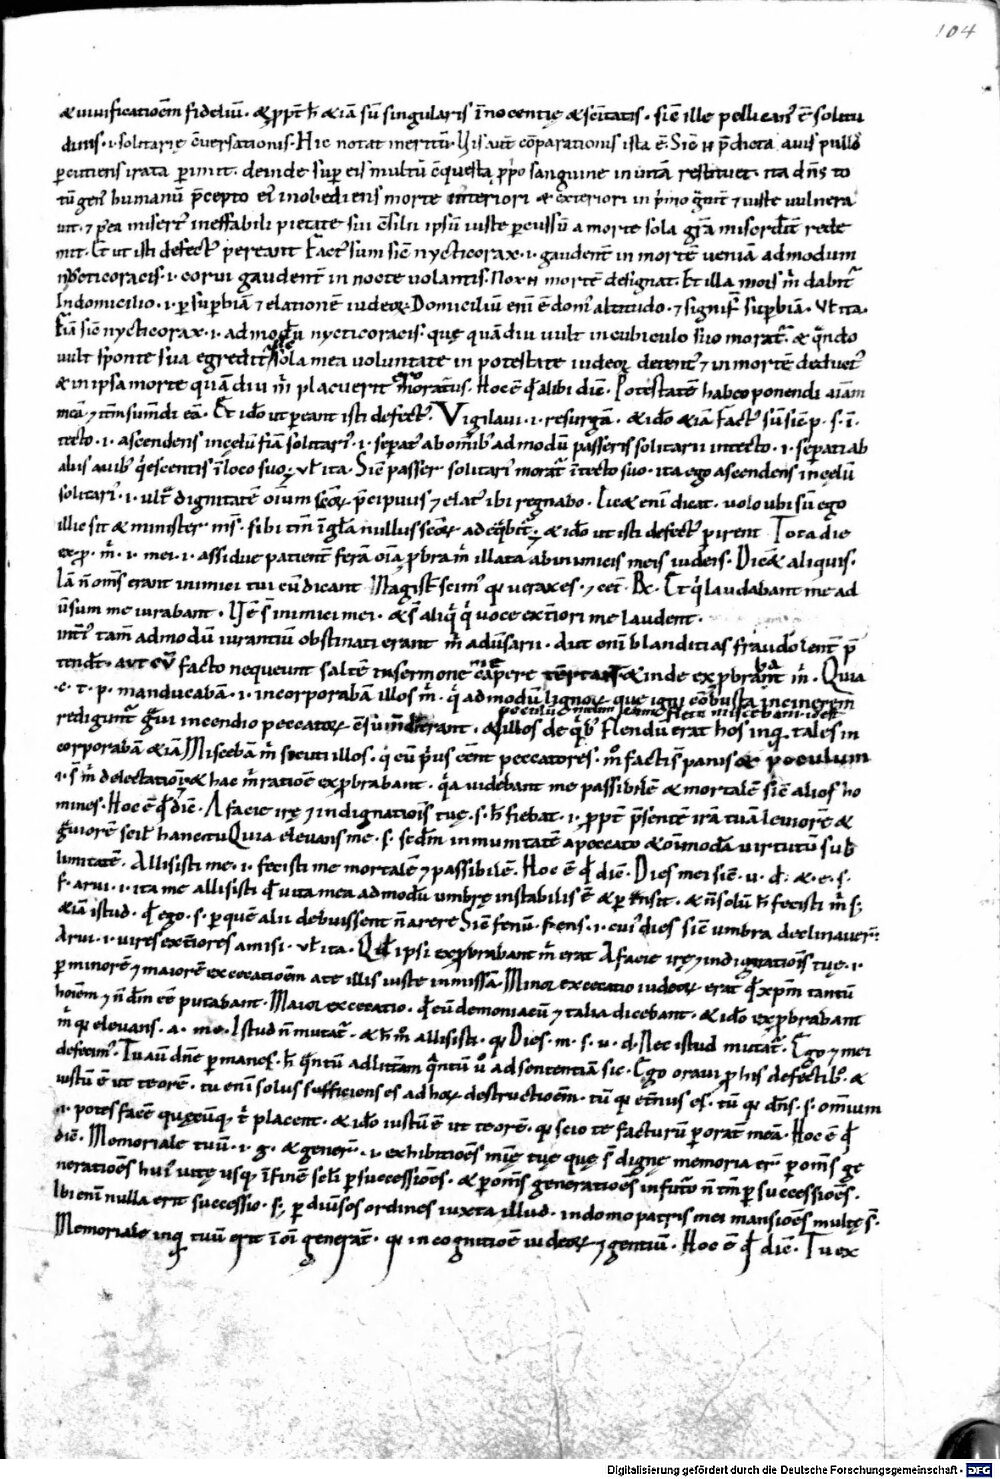 104
& uiuificatiōem fideliū · & ꝓpt̄ h̄ & iā sū singularis īnocentię & sc̄itatis · sic̄ ille pellican⁹ ē solitu
dinis · i · solitarię c̄uersationis · Hic notat meritū · His aut̄ cōparationis ista ē · Sic̄ n̄ p̄dicta auis pullos
ꝑcutiens irata ꝑimit · deinde suꝑ eis multū c̄questa ꝓp̄o sanguine in uitā restituet · ita dn̄s to
tū gen⁹ humanū p̄cepto ei⁹ inobediens morte interiori & exteriori in p̄mo
uit · ⁊ p̄ea misert⁹ ineffabili pietate sui c̄silii ipsū iuste ꝑcussū a morte sola gr̄a misc̄dit̄ rede
mit · Et ut isti defect⁹ pereant fact⁹ sum sic̄ nycticorax · i · gaudent̄ in mortē meniā admodum
nycticoracis · i · corui gaudent̄ in nocte uolantis · Nox n̄ mortē designat · Et illa mors m̄ dabit̄
In domicilio · i · ꝑ suꝑbiā ⁊ elationē iudeoꝝ · Domiciliū eni ē dom⁹ altitudo · ⁊ signif̄ suꝑbiā · Vl̄ ita ·
f̄iā sic̄ nycticorax · i · admodū nycticoracis · quę quādiu uult in cubiculo suo morat̄ · & qn̄do
uult sponte sua egredit̄ sola mea uoluntate in potestate iudeoꝝ detent⁹ ⁊ in mortē deduct⁹
& in ipsa morte quādiu m̄ placuerit moratus · Hoc ē qd̄ alibi dic̄ · Potestatē habeo ponendi aīam
meā ⁊ it̄m sumdi eā · Et ido ut pereant isti defect⁹ · Vigilaui · i · resurgā · & ido & iā fact⁹ sū sic̄ p · s · ī ·
tecto · i · ascendens in celū f̄iā solitari⁹ · i · seperat⁹ ab omīb⁹ admodū passeris solitarii in tecto · i · seperati ab
aliis auib⁹ qescentis ī loco suo · Vl̄ ita · Sic̄ passer solitari⁹ morat̄ ī tecto suo · ita ego ascendens in celū
solitari⁹ · i · ult̄ dignitatē oīum scōꝝ p̄cipuus ⁊ elat⁹ ibi regnabo · Lic& eni dicat · uolo ubi sū ego
illic sit & minister ms̄ · sibi tm̄ ī gl̄a nullus scōꝝ adeqbit̄ · & ido ut isti defect⁹ pirent Tota die
exp · m̄ · i · mei · i · assidue patient̄ ferā oīa ꝓbra m̄ illata ab inimicis meis iudeis · Dic& aliquis ·
Iā n̄ om̄s erant inimici tui cū dicant Magist̄ scim⁹ qꝛ uerax es · ⁊ cet̄ · Rc̄ · Et q̄ laudabant me ad
ūsum me iurabant · Hi s̄t inimici mei · & s̄t aliq̄ q̄ uoce ext̄iori me laudent ·
int̄i⁹ tam̄ admodū iurantiū obstinati erant m̄ adūsarii · dut oni blanditias fraudolent̄ p̄
tendt̄ · aut cū facto nequeunt saltē in sermone me capere & inde expbrabant m̄ · Quia
· c · t · p · manducabā · i · incorporabā illos m̄ · q̄ admodū lignoꝝ que igni cōbusta in cinerem
poculū meum cum fletu miscebam · id est
redigunt̄ g̅ui incendio peccatoꝝ c̄sūmdi erant · & illos de qb⁹ flendū erat hos inq̄ · tales in
corporabā & iā Miscebā m̄ sociaui illos · q̄ cū p̄us eēnt peccatores · m̊ facti s̄ panis & poculum
· i · s̄ m̄ delectatiōi · & hac m̄ ratiōe expbrabant · qa uidebant me passibilē & mortalē sic̄ alios ho
mines · Hoc ē qd̄ dic̄ · A facie irę ⁊ indignatiōis tuę · s · h̄ fiebat · i · ꝓpt̄ p̄sentē irā tuā leuiorē &
g̅uiorē scil̄ hanc Quia eleuans me · s · sc̄dm immunitatē a peccato & om̄modā uirtutū sub
limitatē · Allisisti me · i · fecisti me mortalē ⁊ passibilē · Hoc ē qd̄ dic̄ · Dies mei sic̄ · u · d̄ · & · e · s ·
f · arui · i · ita me allisisti qd̄ uita mea admodū umbrę instabilis ē & ꝑt̄nsit · & n̄ solū h̄ fecisti m̄ s;
& iā istud · qd̄ ego · s · ꝑ quē alii debuissent n̄ arere Sic̄ fenū · f̄ens · i · cui⁹ dies sic̄ umbra declinauer̄ ·
Arui · i · uires ext̄iores amisi · Vl̄ ita · Qd̄ ipsi expbrabant m̄ erat A facie irę ⁊ indignatiōis tuę · i ·
ꝑ minorē ⁊ maiorē excecatiōem a te illis iuste inmissā · Minor excecatio iudeoꝝ · erat qd̄ xpm̄ tantū
hoīem ⁊ n̄ dm̄ eē putabant · Maior excecatio · qd̄ eū demoniacū ⁊ talia dicebant · & ido expbrabant
m̄ qꝛ eleuans · a · me · Istud n̄ mutat̄ · & h̄ m̊ allisisti · qꝛ Dies · m · s · u · d · Nec istud mutat̄ · Ego ⁊ mei
defecim⁹ · Tu aū dn̄e ꝑmanes · h̄ qntū ad litt̄am qntū u̇ ad sententiā sic · Ego oraui ꝓ his defectib⁹ · &
iustū ē ut teorē · tu eni solus sufficiens es ad hoꝝ destructiōem · tū qꝛ et̄nus es · tū qꝛ dn̄s · s · omnium
· i · potes facē quęcūq · t̄ placent · & ido iustū ē ut teorē · qꝛ scio te facturū ꝑ orat̄ meā · Hoc ē qd̄
dic̄ · Memoriale tuū · i · g · & gener̄ · i · exhibitiōes mię tuę quę s̄t dignę memoria er̄ · ꝑ om̄s ge
neratiōes hui⁹ uitę usq̄ · ī finē scl̄i ꝑ successiōes · & ꝑ om̄s generatiōes in futo n̄ tm̄ ꝑ successiōes ·
Ibi eni nulla erit successio · s; ꝑ diūsos ordines iuxta illud · in domo patris mei mansiōes multę s̄t ·
Memoriale inq̄ tuū erit ī oī generat̄ · qꝛ in cognitiōe iudeoꝝ ⁊ gentiū · Hoc ē qd̄ dic̄ · Tu ex
Digitalisierung gefördert durch die Deutsche Forschungsgemeinschaft - DFG